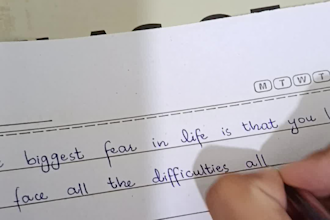 M T W T
biggest fear in life is that you
face all the difficulties all